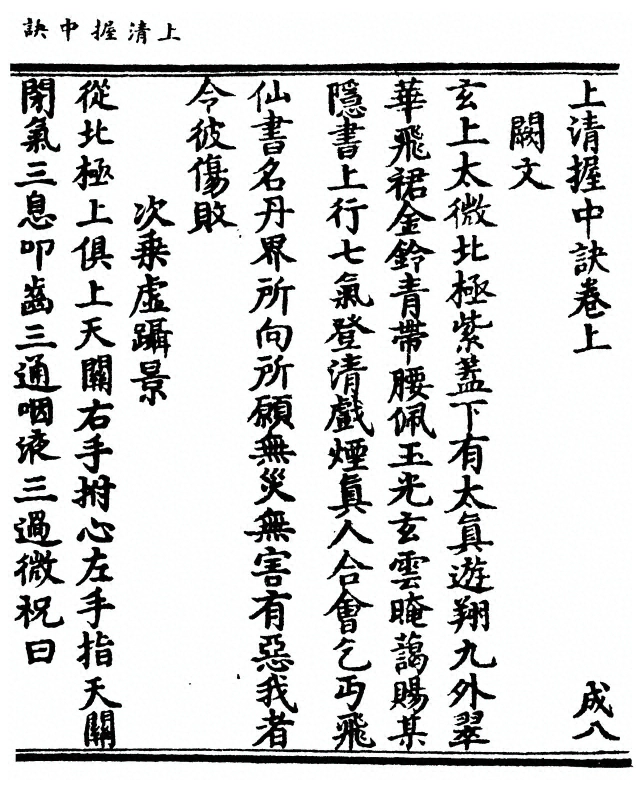 上清握中訣
上清握中訣卷上 成八
闕文
玄上太微北極紫蓋下有太眞遊翔九外翠
華飛裙金鈴青帶腰佩玉光玄雲晻藹賜某
隱書上行七氣登清戲煙眞人合會乞丐飛
仙書名丹界所向所願無災無害有惡我者
令彼傷敗
次乘虛躡景
從北極上俱上天關右手拊心左手指天關
閉氣三息叩齒三通咽液三過微祝曰